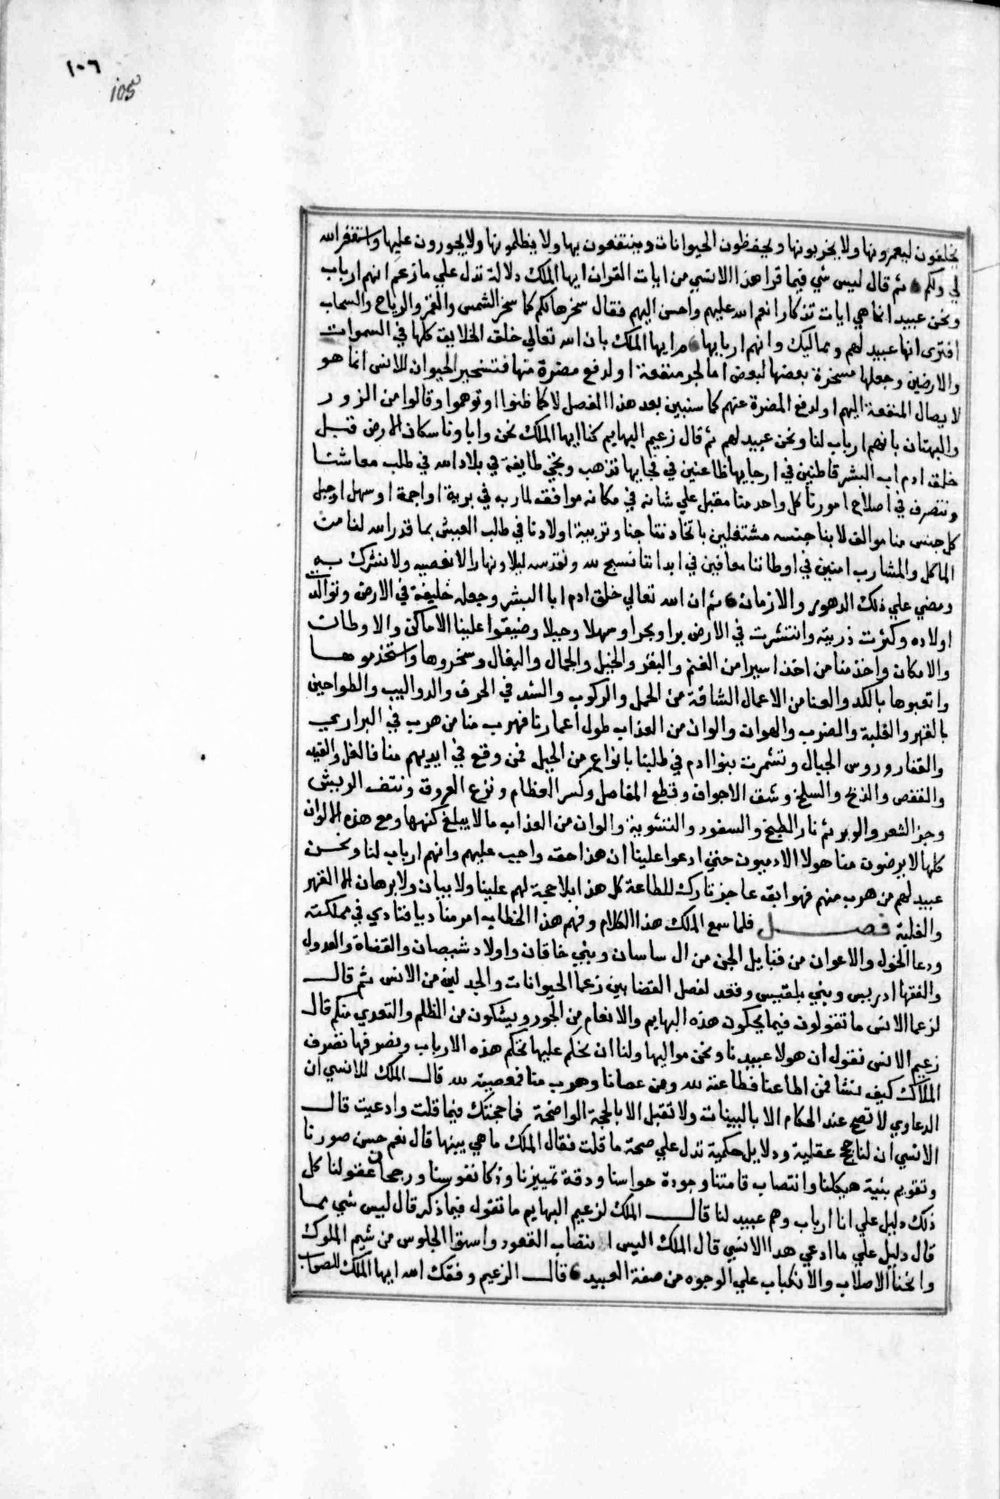 ١٠٦
105
يخلفون ليعمرونها ولا يخربونها ويحفظون الحيوانات وينتفعون بها ولا يظلمونها ولا يجورون عليها واستغفر الله
لي ولكم ثم قال ليس شي فيما قرا هذا الانسي من ايات القران ايها الملك دلالة تدل علي ما زعم انهم ارباب
ونحن عبيد انما هي ايات تذكار انعم الله عليهم واحسن اليهم فقال سخرها لكم كما سخر الشمس والقمر والرياح والسحاب
افترى انها عبيد لهم ومماليك وانهم اربابها ايها الملك بان الله تعالي خلق الخلايق كلها في السموات
والارضين وجعلها مسخرة بعضها لبعض اما لجر منفعة او لدفع مضرة منها فتسخير الحيوان للانس انما هو
لايصال المنفعة اليهم او لدفع المضرة عنهم كما سنبين بعد هذا الفصل لا كما ظنوا او توهموا وقالوا من الزور
والبهتان بانهم ارباب لنا ونحن عبيد لهم ثم قال زعيم البهايم كنا ايها الملك نحن واباونا سكان الارض قبل
خلق ادم اب البشر قاطنين في ارجايها ظاعنين في فجايها تذهب وتجي طايفة في بلاد الله في طلب معاشنا
ونتصرف في اصلاح امورنا كل واحد منا مقبل علي شانه في مكانه موافقه لماربه في برية او اجمة او سهل او جبل
كل جنس منا موالف لابنا جنسه مشتغلين باتخاذ نتاجنا وتربية اولادنا في طلب العيش بما قدر الله لنا من
الماكل والمشارب امنين في اوطاننا معافين في ابداننا نسبح لله ونقدسه ليلا ونهارا لا نعصيه ولا نشرك به
ومضي علي ذلك الدهور والازمان ثم ان الله تعالي خلق ادم ابا البشر وجعله خليفة في الارض وتوالد
اولاده وكثرت ذريته وانتشرت في الارض برا وبحرا وسهلا وجبلا وضيقوا علينا الاماكن والاوطان
والامكان واخذ منا من اخذ اسيرا من الغنم والبقر والخيل والجمال والبغال وسخروها واستخدموها
واتعبوها بالكد والعنا من الاعمال الشاقة من الحمل والركوب والشد في الحرف والدواليب والطواحين
بالقهر والغلبة والضرب والهوان والوان من العذاب طول اعمارنا فهرب منا من هرب في البراري
والقفار وروس الجبال وتشمرت بنوا ادم في طلبنا بانواع من الحيل فمن وقع في ايديهم منا فالغل والقيد
والقفص والذبح والسلخ وشق الاجواف وقطع المفاصل وكسر العظام ونزع العروق ونتف الريش
وجز الشعر والوبر ثم نار الطبخ والسفود والتشوية والوان من العذاب ما لا يبلغ كنهها ومع هذه الالوان
كلها لا يرضون منا هولا الادميون حتي ادعوا علينا ان هذا حق واجب عليهم وانهم ارباب لنا ونحن
عبيد لهم من هرب منهم فهو ابق عاجز تارك للطاعة كل هذا بلا حجة لهم علينا ولا بيان ولا برهان الا القهر
والغلبة فصل فلما سمع الملك هذا الكلام وفهم هذا الخطاب امر مناديا فنادي في مملكته
ودعا الخول والاعوان من قبايل الجن من ال ساسان وبني خاقان واولاد شيصان والقضاة والعدول
والفقها ادريس وبني بلقيس وقعد لفصل القضا بين زعما الحيوانات والجدلين من الانس ثم قال
لزعما الانس ما تقولون فيما يحكون هذه البهايم والانعام من الجور ويشكون من الظلم والتعدي منكم قال
زعيم الانس نقول ان هولا عبيدنا ونحن مواليها ولنا ان نحكم عليها تحكم هذه الارباب ونصرفها تصرف
الملاك كيف نشا فمن اطاعنا فطاعته لله ومن عصانا وهرب منا فمعصيته لله قال الملك للانسي ان
الدعاوي لا تصح عند الحكام الا بالبينات ولا تقبل الا بالحجة الواضحة فما حجتك فيما قلت وادعيت قال
الانسي ان لنا حجج عقلية ودلايل حكمية تدل علي صحة ما قلت فقال الملك ما هي بينها قال نعم حسن صورنا
وتقويم بنية هيكلنا وانتصاب قامتنا وجودة حواسنا ودقة تمييزنا وذكا نفوسنا ورجحان عقولنا كل
ذلك دليل علي انا ارباب وهم عبيد لنا قال الملك لزعيم البهايم ما تقول فيما ذكر قال ليس شي مما
قال دليل علي ما ادعي هذا الانسي قال الملك اليس انتصاب القعود واستوا الجلوس من شيم الملوك
وانحنا الاصلاب والانكباب علي الوجوه من صفة العبيد قال الزعيم وفقك الله ايها الملك للصواب